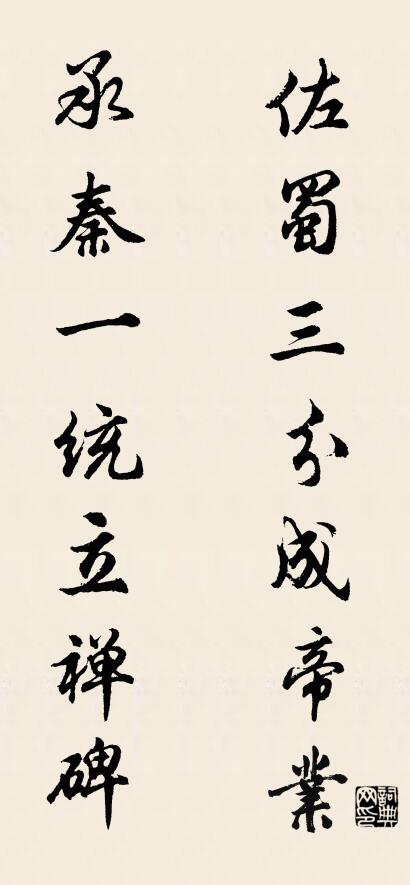 佐蜀三分成帝業
承秦一统立禅碑
詞典网印